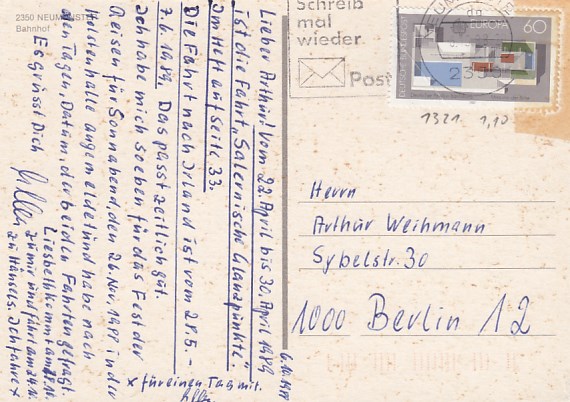 2350 NEUMÜNSTER
Bahnhof
Schreib
mal
wieder
Post
EUROPA 60
DEUTSCHE BUNDESPOST
2350
1321 1,10
Lieber Arthur! Vom 22. April bis 30. April 1989
ist die Fahrt „Salernische Glanzpunkte“.
Im Heft auf Seite 33.
Die Fahrt nach Irland ist vom 28.5.-
7.6.1989. Das passt zeitlich gut.
Ich habe mich soeben für das Fest der
Reisen für Sonnabend, den 26. Nov. 1988 in der
Holstenhalle angemeldet und habe nach
den Tagen, Datum, der beiden Fahrten gefragt.
Es grüsst Dich
Liesbeth kommt am
zu mir und fährt am 24.10.
zu Hänsels. Ich fahre x
x für einen Tag mit.
6.10.1988
Herrn
Arthur Weihmann
Sybelstr. 30
1000 Berlin 12